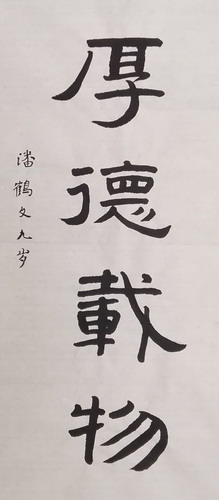 厚德載物
潘鶴文九岁